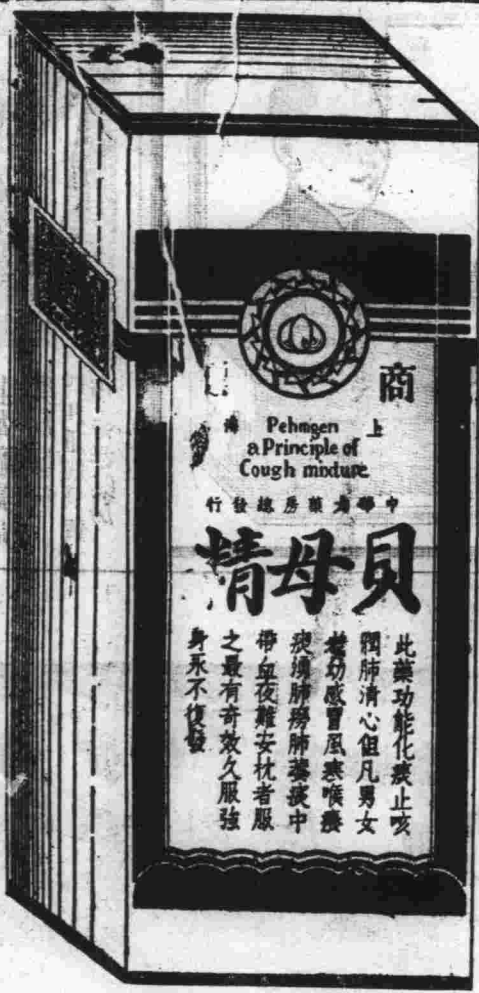 商
上海
Pehmgen
a Principle of
Cough mixture
中華大藥房總發行
貝母精
此藥功能化痰止咳
潤肺清心但凡男女
老幼感冒風寒喉癢
痰湧肺癆肺萎痰中
帶血夜難安枕者服
之最有奇效久服強
身永不復發